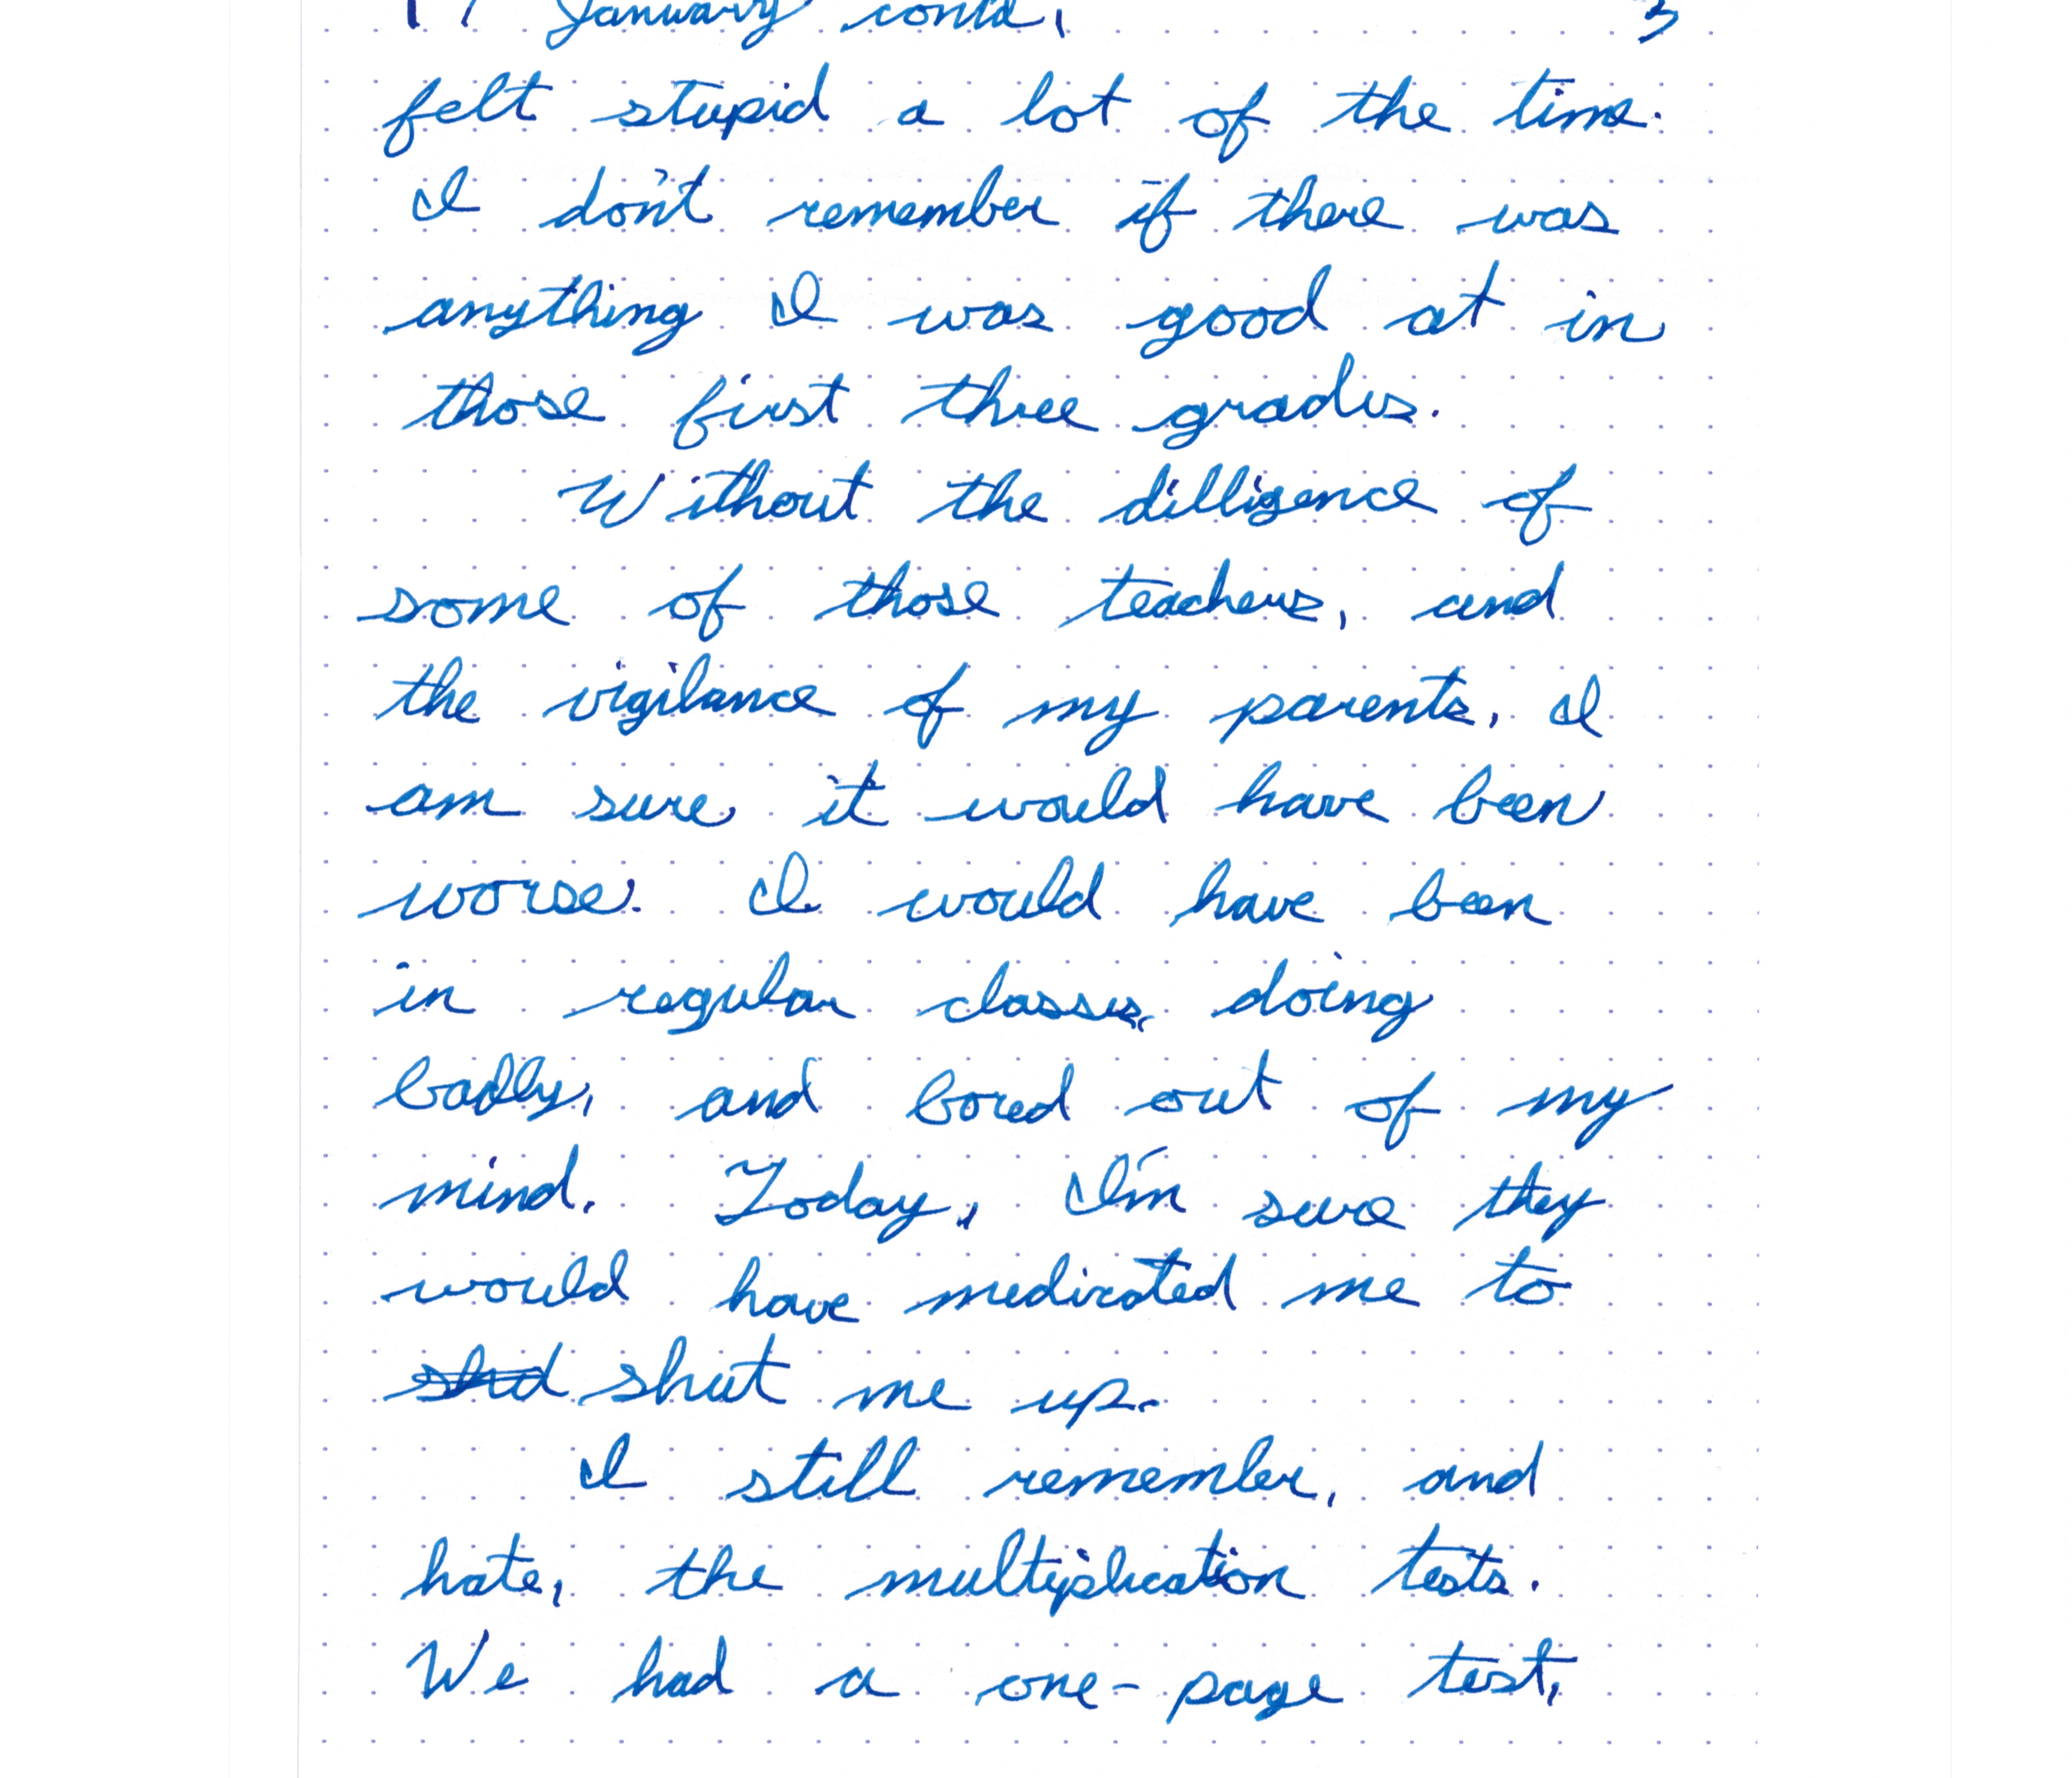 17 January contd. 3
felt stupid a lot of the time.
I don't remember if there was
anything I was good at in
those first three grades.
Without the dilligence of
some of those teachers, and
the vigilance of my parents, I
am sure it would have been
worse. I would have been
in regular classes, doing
badly, and bored out of my
mind. Today, I'm sure they
would have medicated me to
shut me up.
I still remember, and
hate, the multiplication tests.
We had a one-page test,